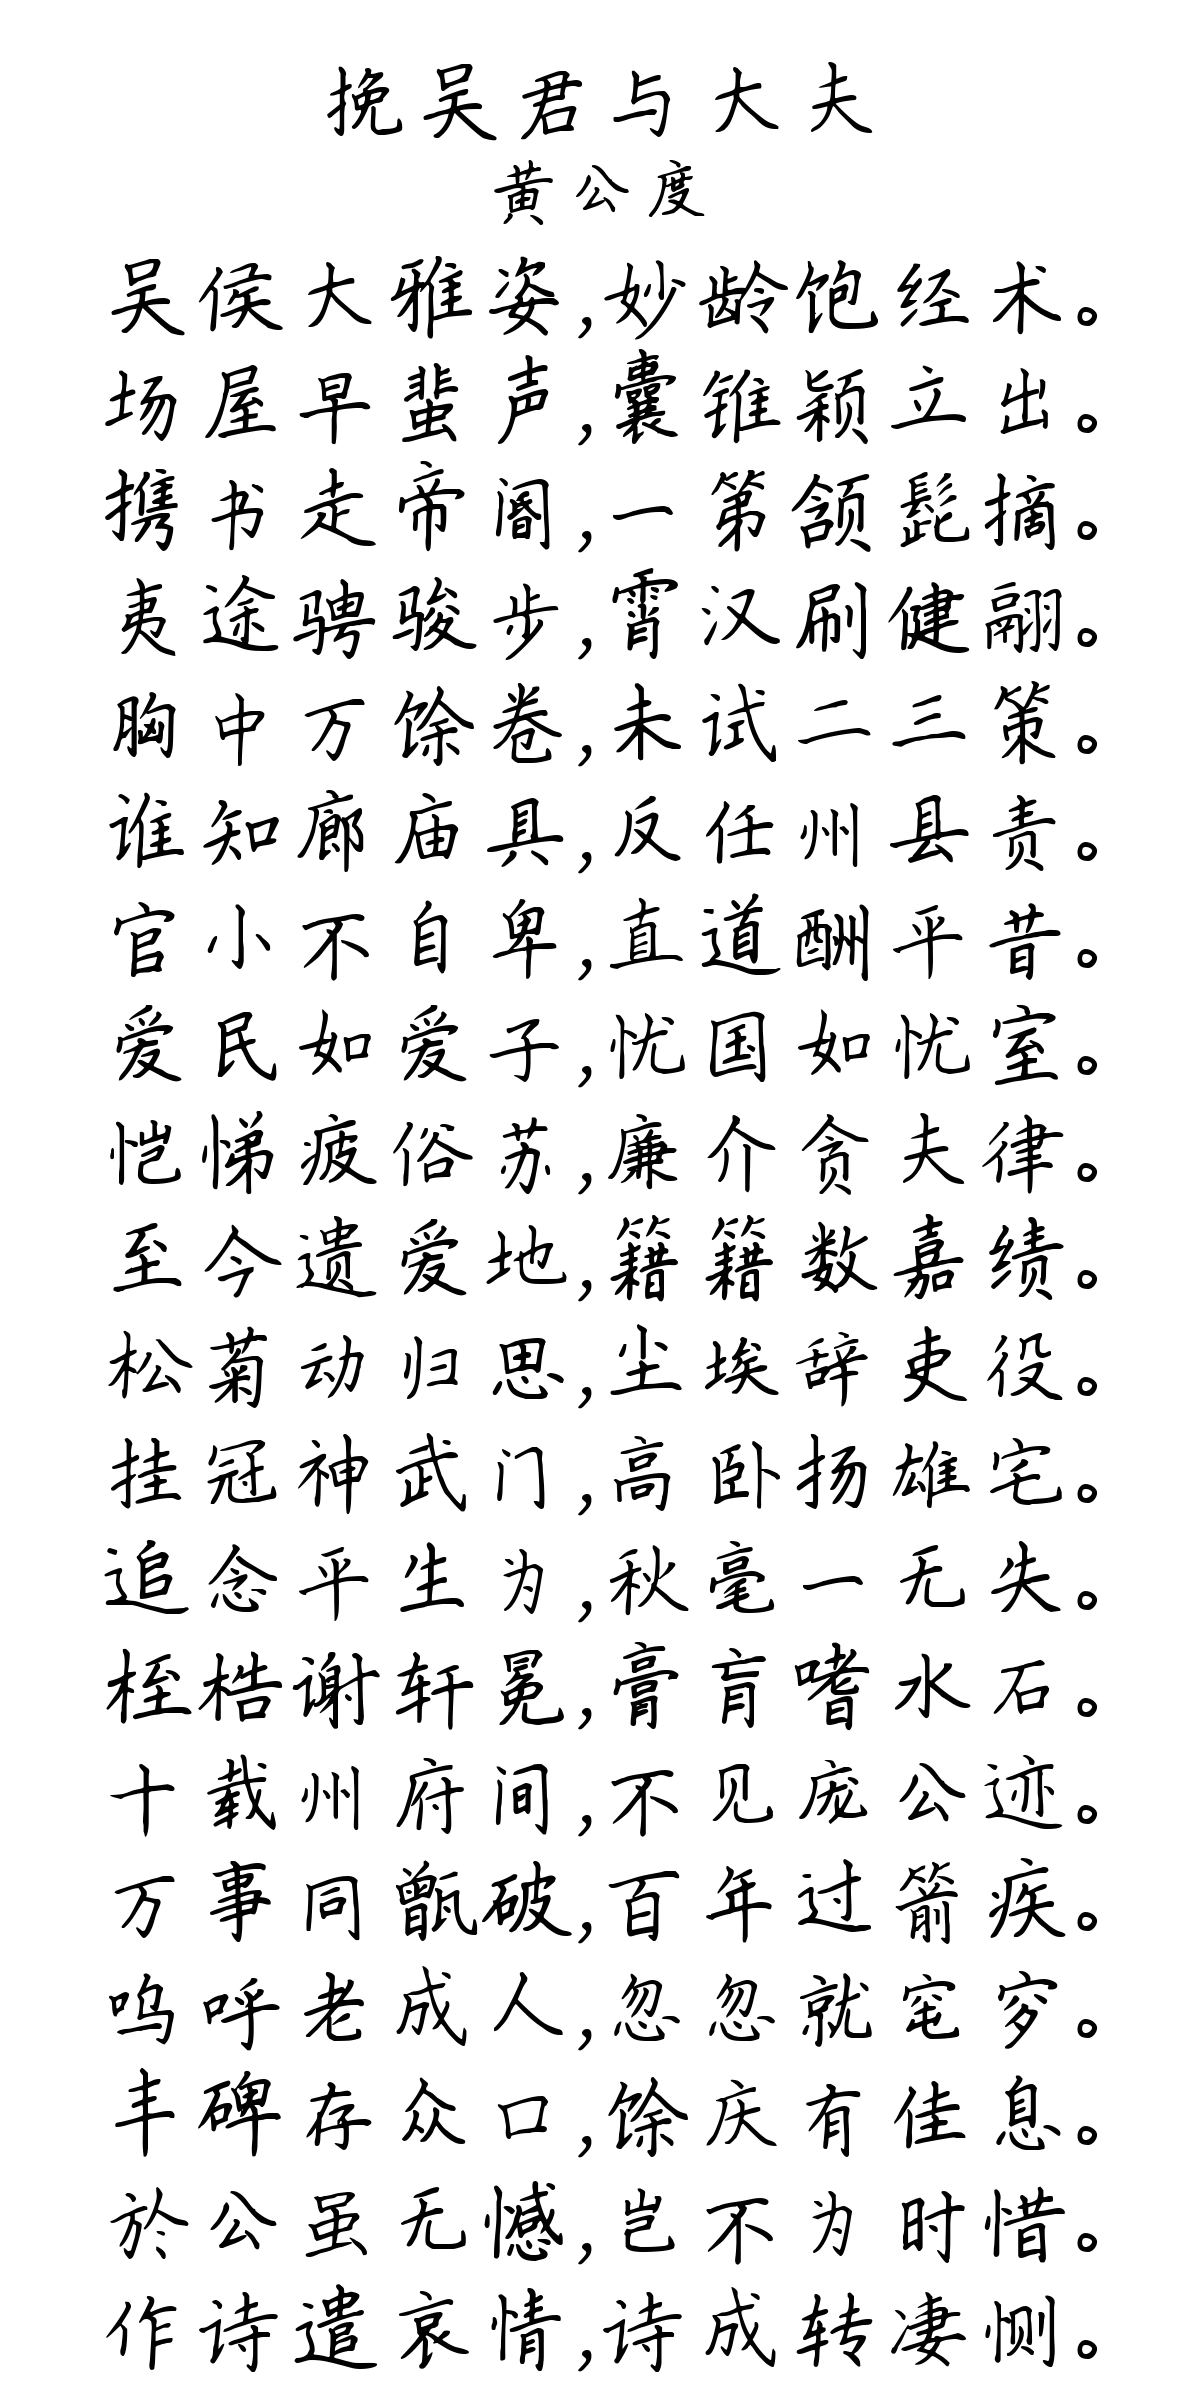 挽吴君与大夫
黄公度
吴侯大雅姿,妙龄饱经术。
场屋早蜚声,囊锥颖立出。
携书走帝阍,一第颔髭摘。
夷途骋骏步,霄汉刷健翮。
胸中万馀卷,未试二三策。
谁知廊庙具,反任州县责。
官小不自卑,直道酬平昔。
爱民如爱子,忧国如忧室。
恺悌疲俗苏,廉介贪夫律。
至今遗爱地,籍籍数嘉绩。
松菊动归思,尘埃辞吏役。
挂冠神武门,高卧扬雄宅。
追念平生为,秋毫一无失。
桎梏谢轩冕,膏肓嗜水石。
十载州府间,不见庞公迹。
万事同甑破,百年过箭疾。
呜呼老成人,忽忽就窀穸。
丰碑存众口,馀庆有佳息。
於公虽无憾,岂不为时惜。
作诗遣哀情,诗成转凄恻。